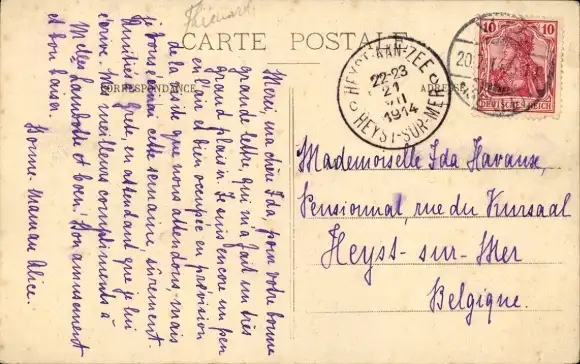 Thiénard
CARTE POSTALE
CORRESPONDANCE
ADRESSE
HEYST-AAN-ZEE
22-23
21
VII
1914
HEYST-SUR-MER
20.7.
10 10
DEUTSCHES REICH
Merci, ma chère Ida, pour votre bonne
grande lettre, qui m'a fait un très
grand plaisir. Je suis encore un peu
en l'air et bien occupée en prévision
de la visite que nous attendons, mais
je vous écrirai cette semaine, sûrement.
Amitiés à Grete, en attendant que je lui
écrive. Mes meilleurs compliments à
Melles Lambotte et à vous! Bon amusement
et bon baiser.
Bonne-maman Alice.
Mademoiselle Ida Havaux,
Pensionnat, rue du Kursaal
Heyst-sur-Mer
Belgique.